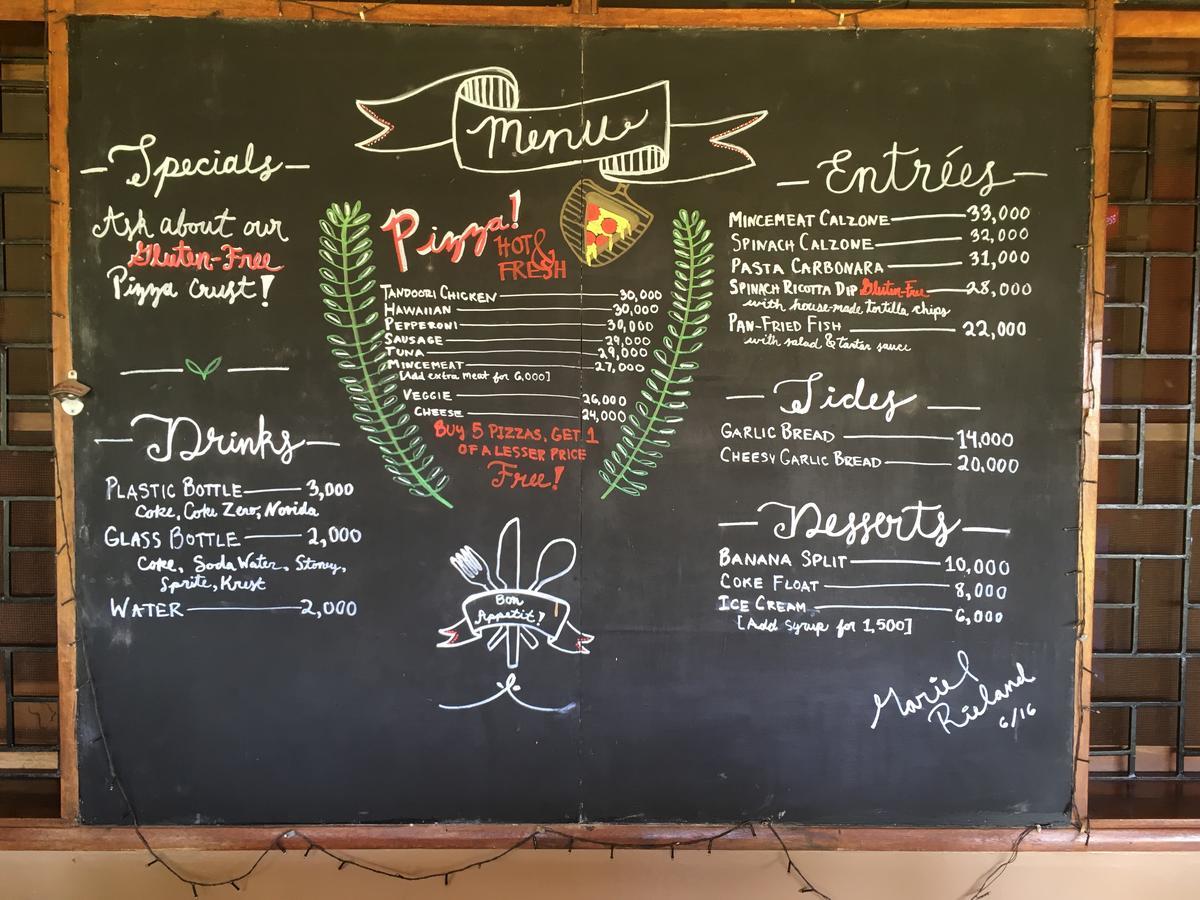 Menu
Specials
Ask about our
Gluten-Free
Pizza Crust!
Drinks
Plastic Bottle 3,000
Coke, Coke Zero, Novida
Glass Bottle 2,000
Coke, Soda Water, Stoney,
Sprite, Krest
Water 2,000
Pizza!
Hot &
Fresh
Tandoori Chicken 30,000
Hawaiian 30,000
Pepperoni 30,000
Sausage 29,000
Tuna 29,000
Mincemeat 27,000
[Add extra meat for 6,000]
Veggie 26,000
Cheese 24,000
Buy 5 Pizzas, Get 1
of a Lesser Price
Free!
Bon
Appetit!
Entrées
Mincemeat Calzone 33,000
Spinach Calzone 32,000
Pasta Carbonara 31,000
Spinach Ricotta Dip Gluten-Free 28,000
with house-made tortilla chips
Pan-Fried Fish 22,000
with salad & tartar sauce
Sides
Garlic Bread 14,000
Cheesy Garlic Bread 20,000
Desserts
Banana Split 10,000
Coke Float 8,000
Ice Cream 6,000
[Add syrup for 1,500]
Mariel
Rieland
6/16